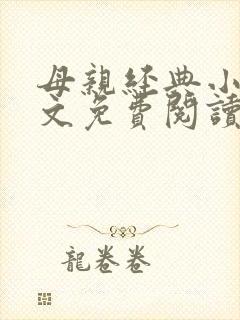 母親經典小
文免費閱讀
龍卷卷